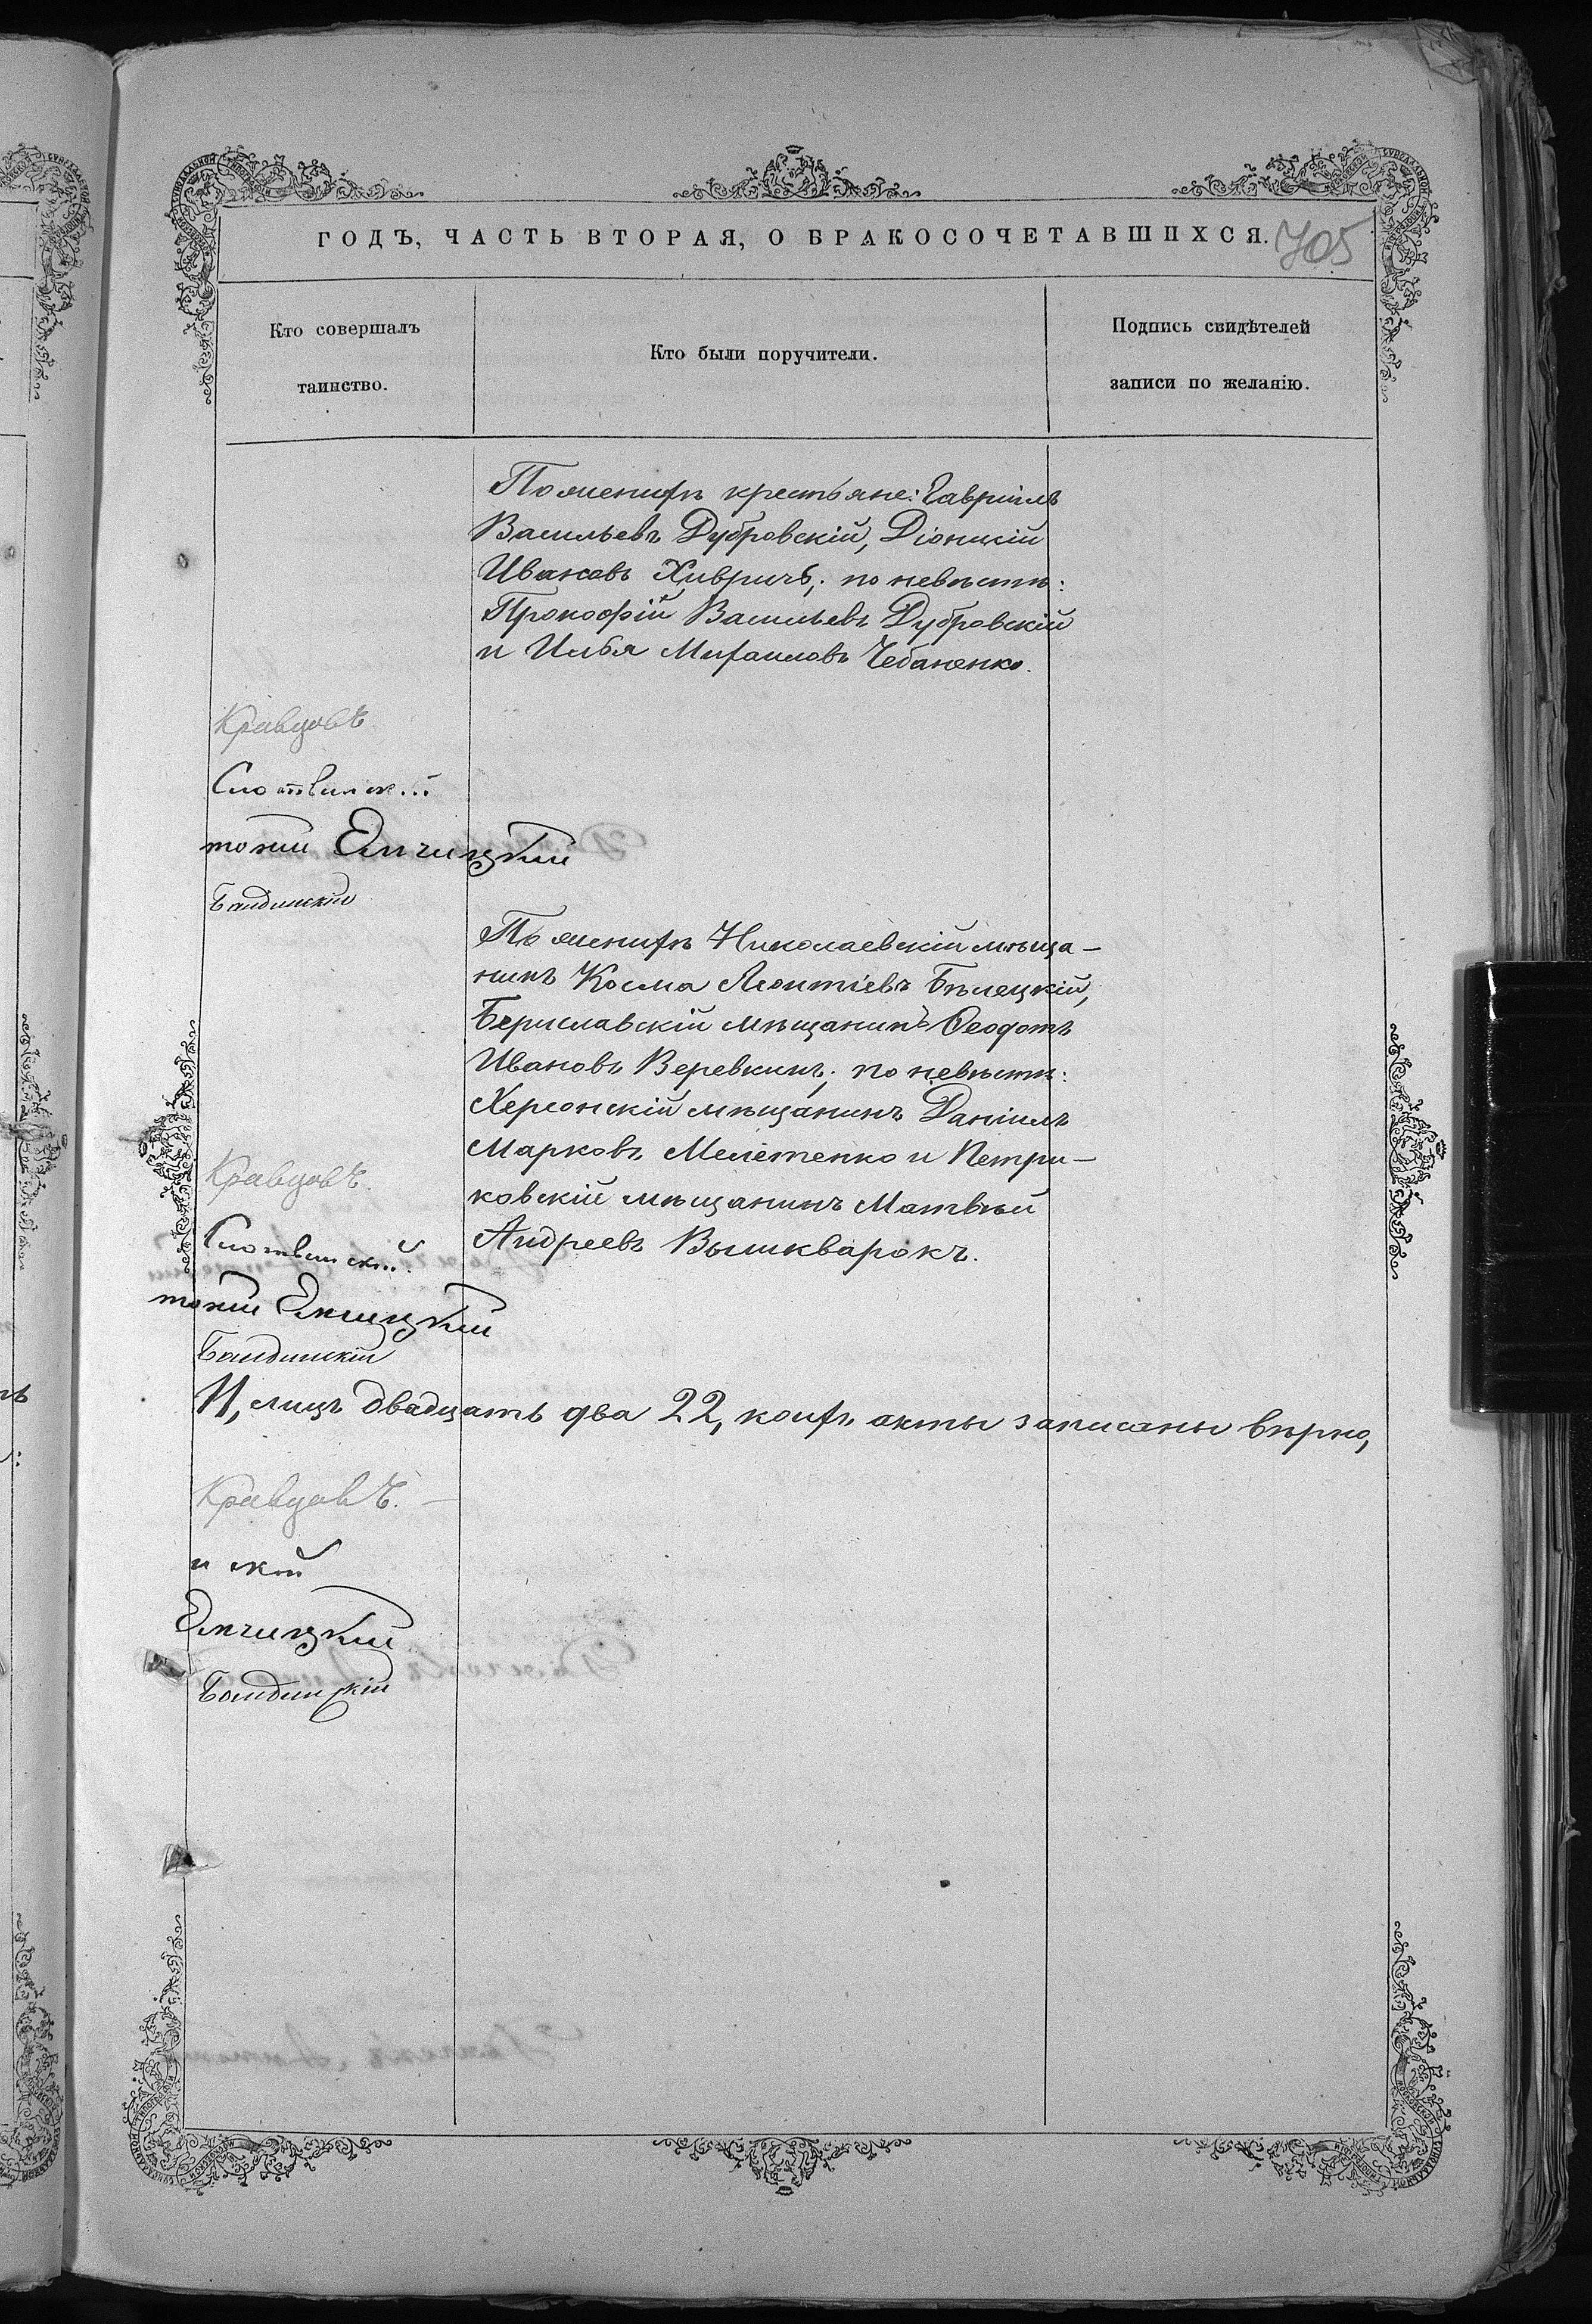 ГОДЪ, ЧАСТЬ ВТОРАЯ, О БРАКОСОЧЕТАВШИХСЯ.
705
Кто совершалъ
таинство.
Кто были поручители.
Подпись свидѣтелей
записи по желанію.
По женихѣ крестьяне: Гавріилъ
Васильевъ Дубровскій, Діонисій
Ивановъ Хивричъ; по невѣстѣ:
Прокофій Васильевъ Дубровскій
и Илья Михаиловъ Чебаненко.
Кравцовъ
Слотвинск
тоній Емчицкій
По женихѣ Николаевскій мѣща-
нинъ Косма Леонтіевъ Бѣлецкій,
Бериславскій мѣщанинъ Ѳеодотъ
Ивановъ Веревкинъ; по невѣстѣ:
Херсонскій мѣщанинъ Даніилъ
Марковъ Мелетенко и Петри-
ковскій мѣщанинъ Матвѣй
Андреевъ Вышкварокъ.
Кравцовъ
Слотвинскій
тоній Емчицкій
И, лицъ двадцать два 22, коихъ акты записаны вѣрно,
Кравцовъ.
нскій
Емчицкій